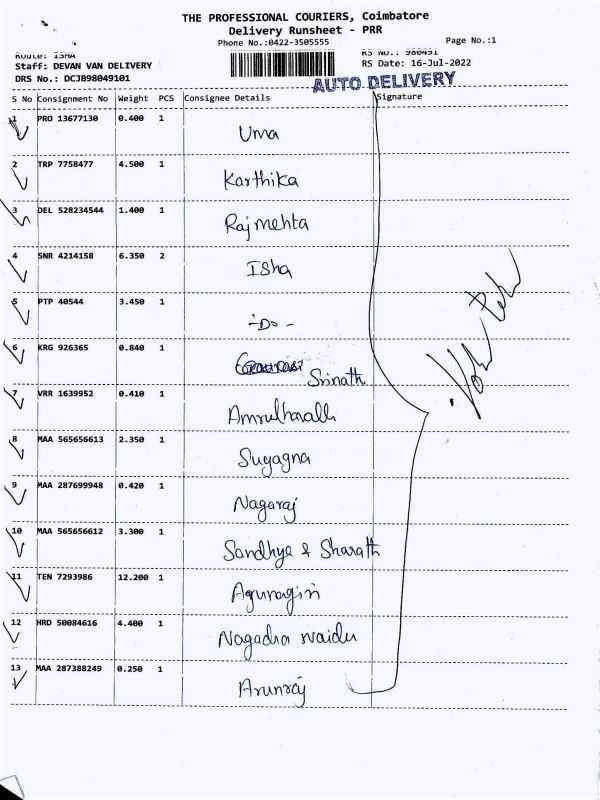 THE PROFESSIONAL COURIERS, Coimbatore
Delivery Runsheet - PRR
Phone No.:0422-3505555 Page No.:1
Route: ISHA RS No.: 980491
Staff: DEVAN VAN DELIVERY RS Date: 16-Jul-2022
DRS No.: DCJB98049101 AUTO DELIVERY
S No Consignment No Weight PCS Consignee Details Signature
1 PRO 13677130 0.400 1 Uma
2 TRP 7758477 4.500 1 Karthika
3 DEL 528234544 1.400 1 Rajmehta
4 SNR 4214158 6.350 2 Isha
5 PTP 40544 3.450 1 -Do-
6 KRG 926365 0.840 1 Srinath
7 VRR 1639952 0.410 1
8 MAA 565656613 2.350 1 Suyagna
9 MAA 287699948 0.420 1 Nagaraj
10 MAA 565656612 3.300 1 Sandhya & Sharath
11 TEN 7293986 12.200 1
12 HRD 50084616 4.400 1 Nagadra naidu
13 MAA 287388249 0.250 1 Arunraj